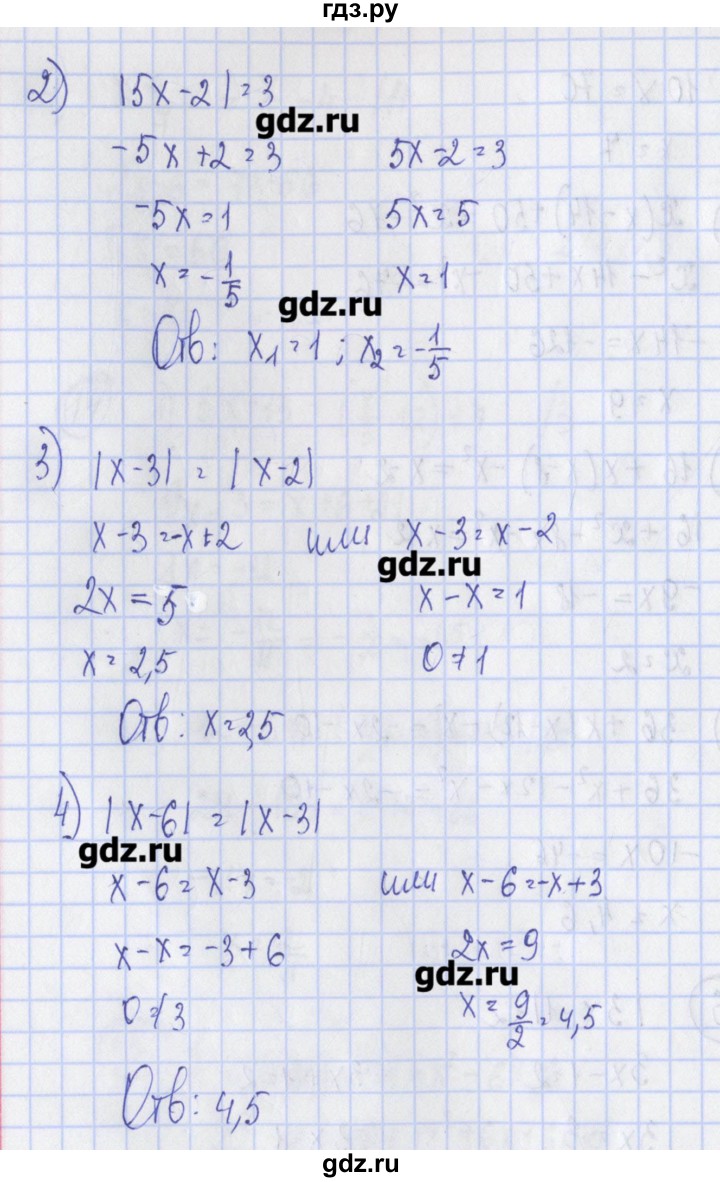 гдз.ру
2) |5x-2|=3
gdz.ru
-5x+2=3 5x-2=3
-5x=1 5x=5
x=-1/5 x=1
gdz.ru
Отв: x₁=1; x₂=-1/5
3) |x-3| = |x-2|
x-3=-x+2 или x-3=x-2
gdz.ru
2x=5 x-x=1
x=2,5 0≠1
Отв: x=2,5
4) |x-6| = |x-3|
gdz.ru
x-6=x-3 или x-6=-x+3
x-x=-3+6 2x=9
gdz.ru
0≠3 x=9/2=4,5
Отв: 4,5
gdz.ru